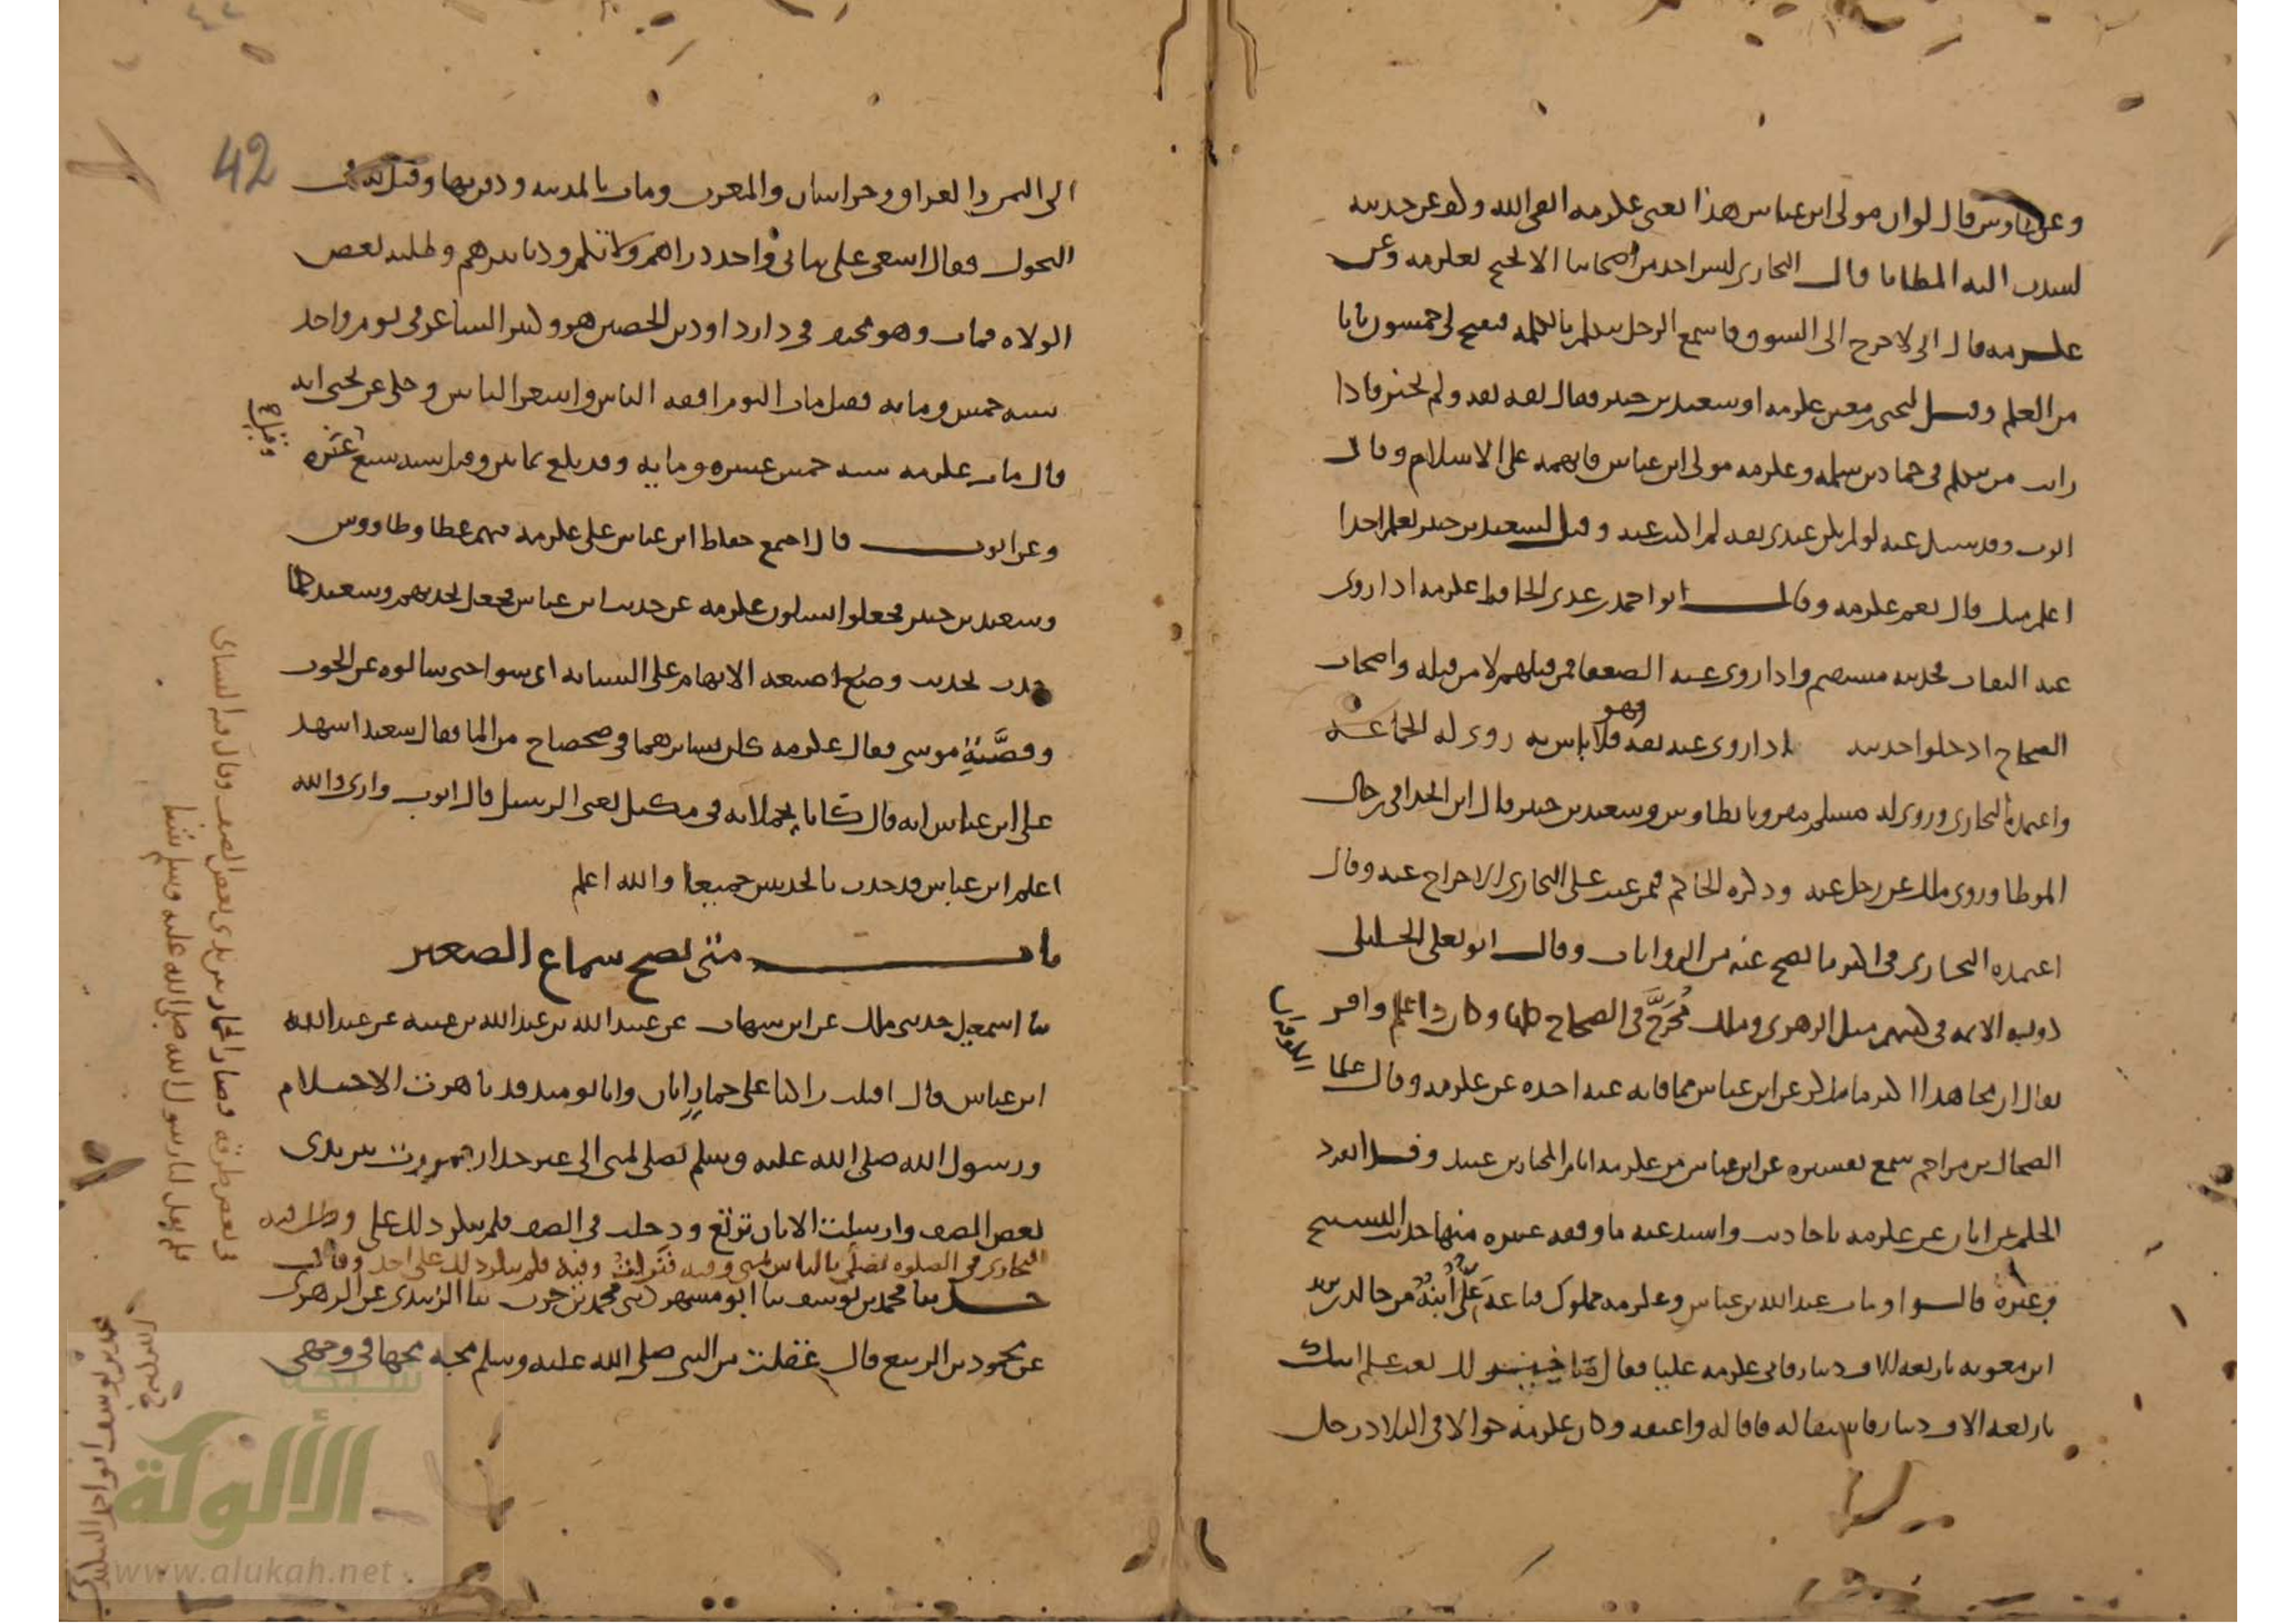 وعن طاوس قال لو ان مولى ابن عباس هذا يعني عكرمه اتقى الله وكف عن حديثه
لشدت اليه المطايا قال البخاري ليس احد من اصحابنا الا يحتج بعكرمه وعن
عكرمه قال اني لاخرج الى السوق فاسمع الرجل يتكلم بالكلمه فيفتح لي خمسون بابا
من العلم وقيل ليحيى بن معين عكرمه او سعيد بن جبير فقال ثقه ثقه ولم يخير فاذا
رايت من يتكلم في حماد بن سلمه وعكرمه مولى ابن عباس فاتهمه على الاسلام وقال
ايوب وقد سئل عنه لو لم يكن عندي ثقه لم اكتب عنه وقيل لسعيد بن جبير تعلم احدا
اعلم منك قال نعم عكرمه وقال ابو احمد بن عدي الحافظ عكرمه اذا روى
عنه الثقات فحديثه مستقيم واذا روى عنه الضعفا فمن قبلهم لا من قبله واصحاب
الصحاح ادخلوا حديثه اذا روى عنه ثقه وهو فلا باس به روى له الجماعه
واعتمده البخاري وروى له مسلم مقرونا بطاوس وسعيد بن جبير قال ابن الحذا في رجال
الموطا وروى مالك عن رجل عنه وذكره الحاكم فمن عيب على البخاري الاخراج عنه وقال
اعتمده البخاري في اكثر ما يصح عنه من الروايات وقال ابو يعلى الخليلي
الايمه في كتبهم مثل الزهري ومالك مخرج في الصحاح وكان ذا علم وافر
يقال ان مجاهدا اكثر ما يذكر عن ابن عباس مما فاته عنه اخذه عن عكرمه وقال علما
الكوفه ان
الضحاك بن مزاحم سمع تفسيره عن ابن عباس من عكرمه ايام المختار بن عبيد وقد انفرد
الحكم بن ابان عن عكرمه باحاديث واسند عنه ما وقفه غيره منها حديث التسبيح
وغيره قالوا ومات عبد الله بن عباس وعكرمه مملوك فباعه علي ابنه من خالد بن يزيد
ابن معويه باربعه الاف دينار فاتى عكرمه عليا فقال ما خير لك بعت علم ابيك
باربعه الاف دينار فاستقاله فاقاله واعتقه وكان عكرمه جوالا في البلاد رحل
42
الى اليمن والعراق وخراسان والمغرب ومات بالمدينه ودفن بها وقيل
التحول فقال اسعى على بناتي واخذ دراهمكم ودنانيركم وطلبه بعض
الولاه فمات وهو مختف في دار داود بن الحصين هو وكثير الشاعر في يوم واحد
سنه خمس ومايه فقيل مات اليوم افقه الناس واشعر الناس وحكي عن يحيى انه
قال مات عكرمه سنه خمس عشره ومايه وقد بلغ ثمانين وقيل سنه سبع عشره
وقيل
وعن ايوب قال اجتمع حفاظ ابن عباس على عكرمه فيهم عطا وطاووس
وسعيد بن جبير فجعلوا يسالون عكرمه عن حديث ابن عباس فجعل يحدثهم وسعيد كلما
حدث بحديث وضع اصبعه الابهام على السبابه اي سوا حتى سالوه عن الحوت
وقصة موسى فقال عكرمه كان يسايرهما في ضحضاح من الما فقال سعيد اشهد
على ابن عباس انه قال كانا يحملانه في مكتل يعني الزبيل قال ايوب وارى والله
اعلم ابن عباس قد حدث بالحديثين جميعا والله اعلم
باب متى يصح سماع الصغير
ثنا اسمعيل حدثني مالك عن ابن شهاب عن عبيد الله بن عبد الله بن عتبه عن عبد الله
ابن عباس قال اقبلت راكبا على حمار اتان وانا يوميذ قد ناهزت الاحتلام
ورسول الله صلى الله عليه وسلم يصلي بمنى الى غير جدار فمررت بين يدي
بعض الصف وارسلت الاتان ترتع ودخلت في الصف فلم ينكر ذلك علي
البخاري في الصلوه يصلي بالناس بمنى وفيه فنزلت وفيه فلم ينكر ذلك علي احد وقال
حدثنا محمد بن يوسف ثنا ابو مسهر حدثني محمد بن حرب ثنا الزبيدي عن الزهري
عن محمود بن الربيع قال عقلت من النبي صلى الله عليه وسلم مجه مجها في وجهي
في بعض طرقه فصار الحمار بين يدي بعض الصف وقال فيه النساي
فلم يقل لنا رسول الله صلى الله عليه وسلم شيا
محمد بن يوسف ابو احمد البيكندي
شبكة
الألوكة
www.alukah.net